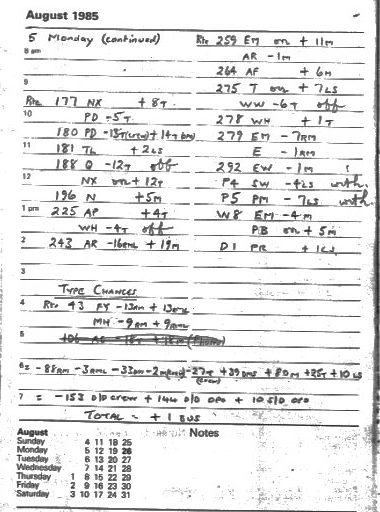 August 1985
5 Monday (continued)
8 am
9
Rte 177 NX + 8T
10
PD - 5T
180 PD - 13T(crew) + 14T
11
181 TL + 2LS
188 Q - 12T off
12
NX on + 12T
196 N + 5M
1 pm
225 AP + 4T
WH - 4T off
2
243 AR - 16RML + 19M
3
TYPE CHANGES
4
Rte 43 FY - 13RM + 13RML
MH - 9RM + 9RML
5
Rte 259 EM on + 11M
AR - 1M
264 AF + 6M
275 T on + 7LS
WW - 6T off
278 WH + 1T
279 EM - 7RM
E - 1RM
292 EW - 1M
P4 SW - 4LS with
P5 PM - 7LS with
W8 EM - 4M
PB on + 5M
D1 PR + 1LS
6 = - 88RM - 3RML - 33DM - 2M(crew) - 27T (crew) + 39DMS + 80M + 25T + 10LS
7 = - 153 D/D crew + 144 D/D OPO + 10 S/D OPO
TOTAL = + 1 BUS
August
Sunday 4 11 18 25
Monday 5 12 19 26
Tuesday 6 13 20 27
Wednesday 7 14 21 28
Thursday 1 8 15 22 29
Friday 2 9 16 23 30
Saturday 3 10 17 24 31
Notes